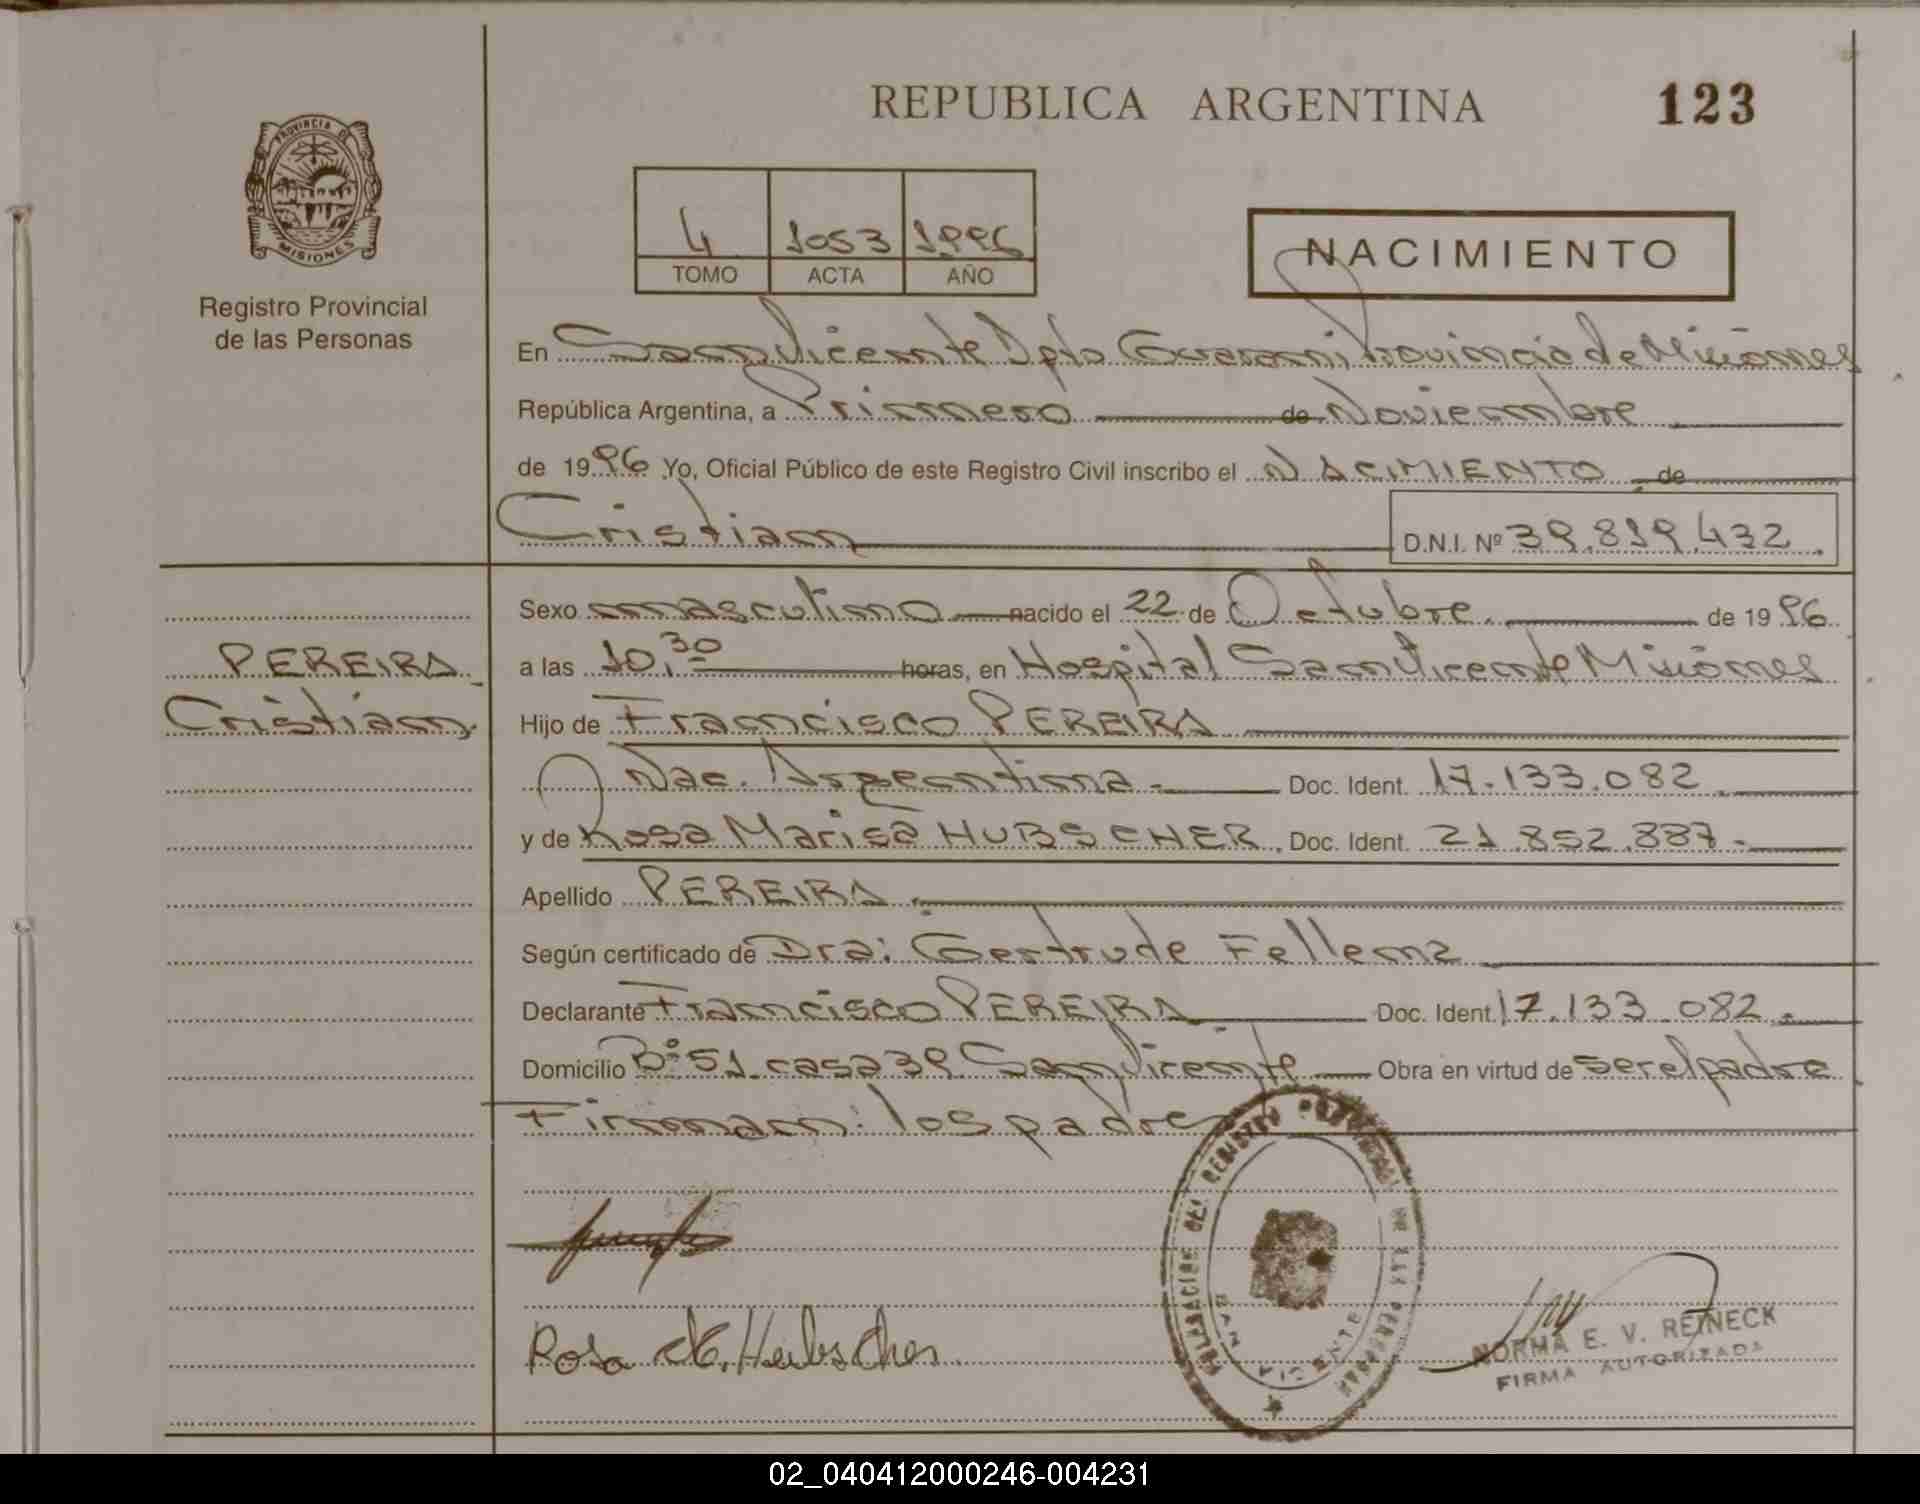 REPUBLICA ARGENTINA
123
PROVINCIA D
MISIONES
Registro Provincial
de las Personas
4 1053 1996
TOMO ACTA AÑO
NACIMIENTO
En San Vicente Dpto Guarani Provincia de Misiones
República Argentina, a Primero de Noviembre
de 1996 Yo, Oficial Público de este Registro Civil inscribo el NACIMIENTO de
Cristian D.N.I. Nº 39.819.432.
Sexo masculino nacido el 22 de Octubre de 1996
PEREIRA
Cristian
a las 10,30 horas, en Hospital San Vicente Misiones
Hijo de Francisco PEREIRA
Nac. Argentina.- Doc. Ident. 17.133.082.
y de Rosa Marisa HUBSCHER. Doc. Ident. 21.852.887.-
Apellido PEREIRA.
Según certificado de Dra: Gertrude Fellenz
Declarante Francisco PEREIRA Doc. Ident. 17.133.082.-
Domicilio Bº 51 casa 39 San Vicente Obra en virtud de ser el padre
Firman: los padres
DEL REGISTRO PROVINCIAL DE LAS PERSONAS
SAN VICENTE
Rosa M. Hubscher
NORMA E. V. REINECK
FIRMA AUTORIZADA
02_040412000246-004231